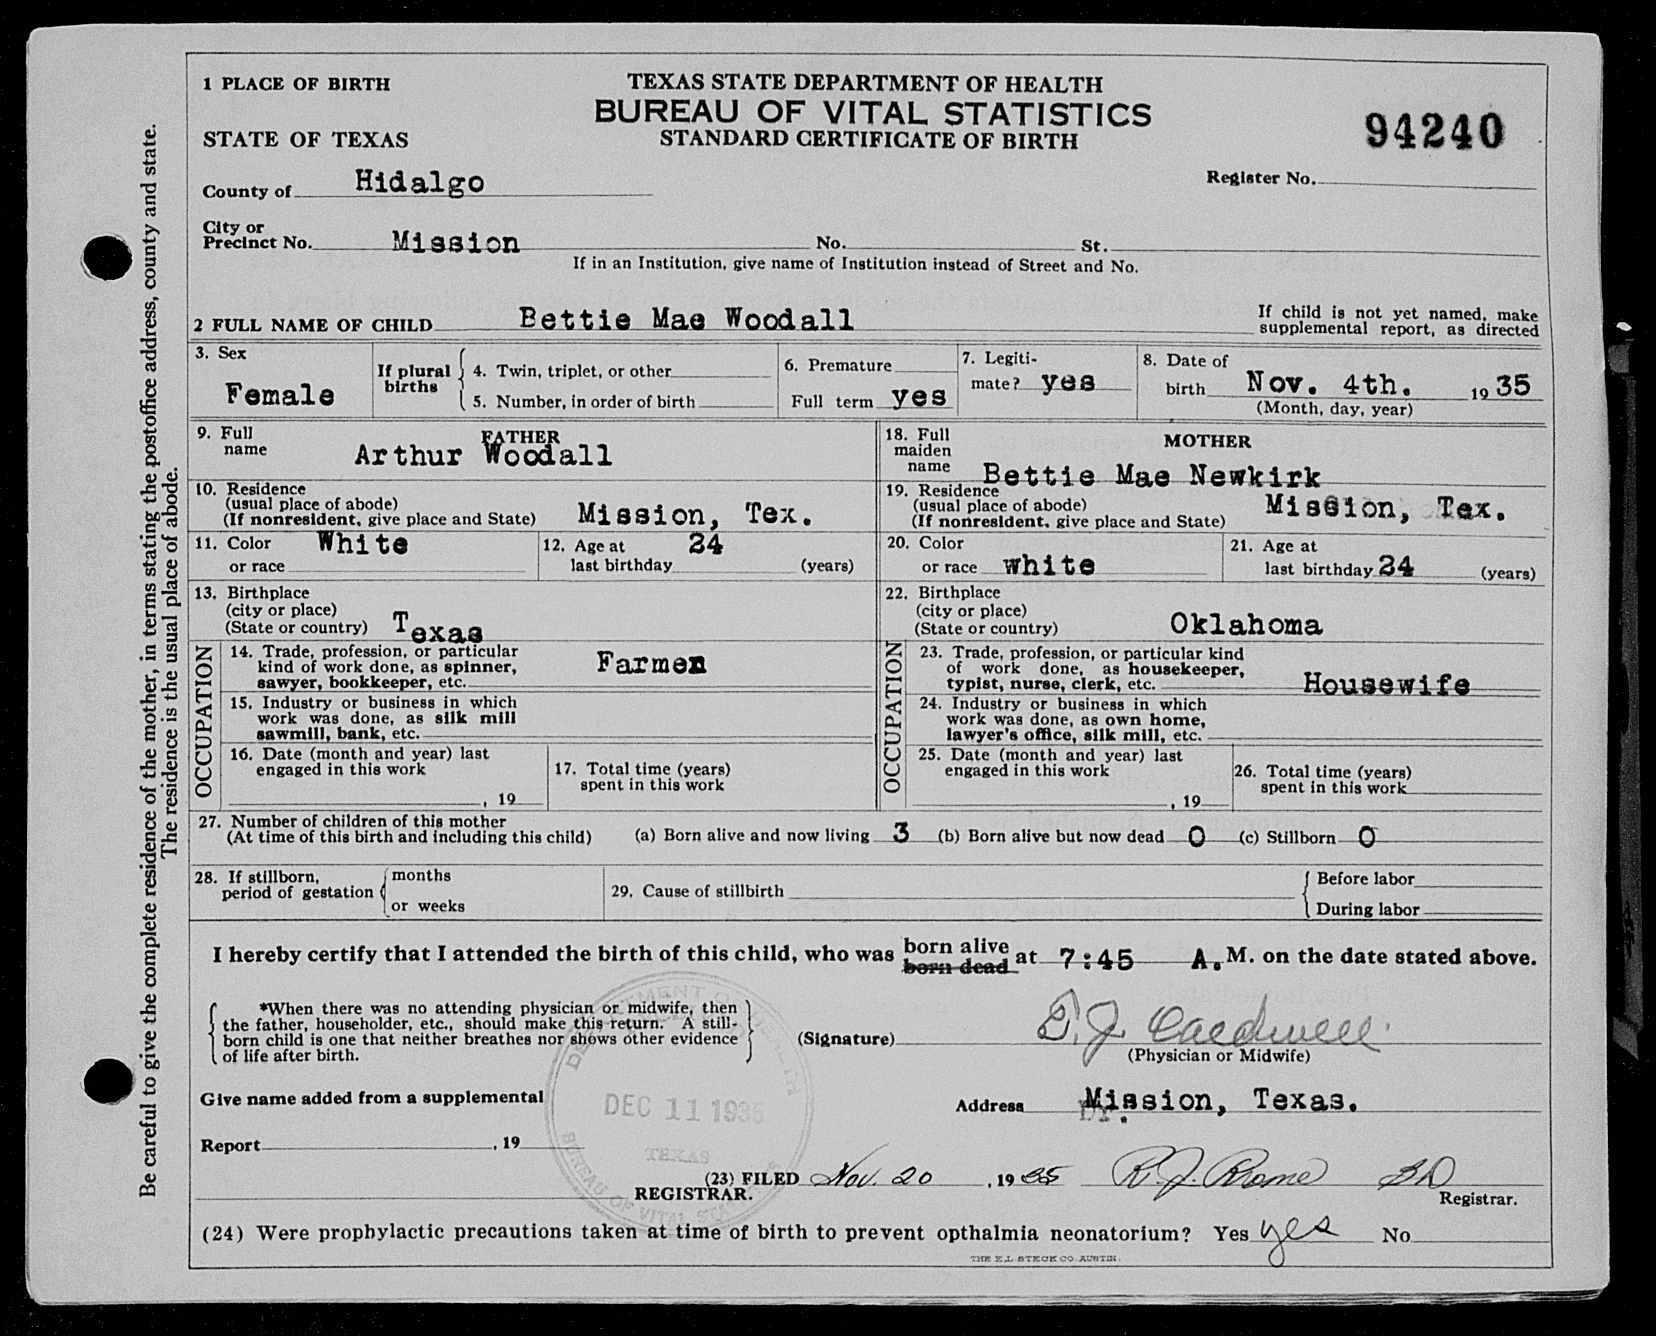 1 PLACE OF BIRTH
STATE OF TEXAS
TEXAS STATE DEPARTMENT OF HEALTH
BUREAU OF VITAL STATISTICS
STANDARD CERTIFICATE OF BIRTH
94240
County of Hidalgo
Register No.
City or
Precinct No. Mission No. St.
If in an Institution, give name of Institution instead of Street and No.
2 FULL NAME OF CHILD Bettie Mae Woodall
If child is not yet named, make
supplemental report, as directed
3. Sex
Female
If plural
births
4. Twin, triplet, or other
5. Number, in order of birth
6. Premature
Full term yes
7. Legiti-
mate? yes
8. Date of
birth Nov. 4th. 1935
(Month, day, year)
FATHER
9. Full
name Arthur Woodall
10. Residence
(usual place of abode)
(If nonresident, give place and State) Mission, Tex.
11. Color
or race White
12. Age at
last birthday 24 (years)
13. Birthplace
(city or place)
(State or country) Texas
OCCUPATION
14. Trade, profession, or particular
kind of work done, as spinner,
sawyer, bookkeeper, etc. Farmer
15. Industry or business in which
work was done, as silk mill
sawmill, bank, etc.
16. Date (month and year) last
engaged in this work
, 19
17. Total time (years)
spent in this work
MOTHER
18. Full
maiden
name Bettie Mae Newkirk
19. Residence
(usual place of abode)
(If nonresident, give place and State) Mission, Tex.
20. Color
or race white
21. Age at
last birthday 24 (years)
22. Birthplace
(city or place)
(State or country) Oklahoma
OCCUPATION
23. Trade, profession, or particular kind
of work done, as housekeeper,
typist, nurse, clerk, etc. Housewife
24. Industry or business in which
work was done, as own home,
lawyer's office, silk mill, etc.
25. Date (month and year) last
engaged in this work
, 19
26. Total time (years)
spent in this work
27. Number of children of this mother
(At time of this birth and including this child) (a) Born alive and now living 3 (b) Born alive but now dead 0 (c) Stillborn 0
28. If stillborn,
period of gestation
months
or weeks
29. Cause of stillbirth
Before labor
During labor
I hereby certify that I attended the birth of this child, who was born alive born dead at 7:45 A. M. on the date stated above.
*When there was no attending physician or midwife, then
the father, householder, etc., should make this return. A still-
born child is one that neither breathes nor shows other evidence
of life after birth.
(Signature) Caldwell
(Physician or Midwife)
Give name added from a supplemental
Address Mission, Texas.
DEC 11 1935
TEXAS
BUREAU OF VITAL
Report , 19
(23) FILED Nov. 20, 1935
REGISTRAR.
Registrar.
(24) Were prophylactic precautions taken at time of birth to prevent opthalmia neonatorium? Yes yes No
THE E.L. STECK CO. AUSTIN.
Be careful to give the complete residence of the mother, in terms stating the postoffice address, county and state.
The residence is the usual place of abode.